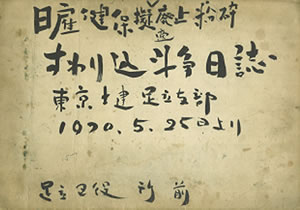 日雇健保擬適廃止粉砕
すわり込斗争日誌
東京土建足立支部
1970.5.25日より
足立区役所前